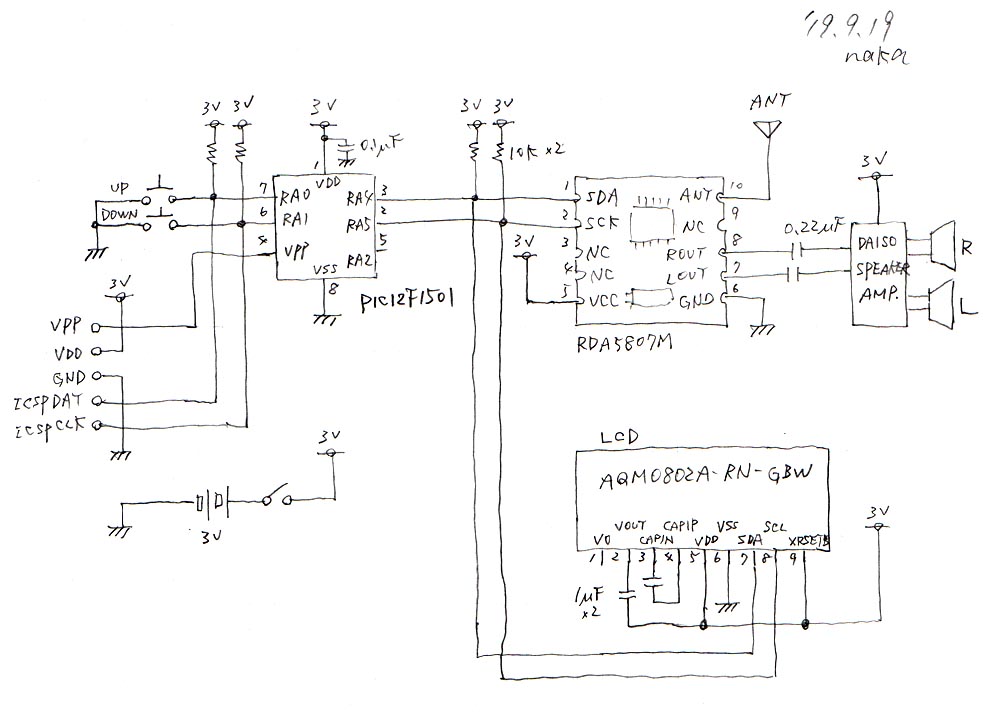 '19.9.19
naka
3V 3V
3V
0.1μF
3V 3V
10K×2
ANT
3V
UP
DOWN
7 RA0
6 RA1
4 VPP
1
VDD
RA4 3
RA5 2
RA2 5
VSS
8
PIC12F1501
1 SDA
2 SCK
3 NC
4 NC
5 VCC
ANT 10
NC 9
ROUT 8
LOUT 7
GND 6
RDA5807M
3V
0.22μF
DAISO
SPEAKER
AMP.
R
L
3V
VPP
VDD
GND
ICSPDAT
ICSPCLK
3V
3V
LCD
AQM0802A-RN-GBW
VOUT CAP1P VSS SCL
V0 CAP1N VDD SDA XRSETB
1 2 3 4 5 6 7 8 9
1μF
×2
3V